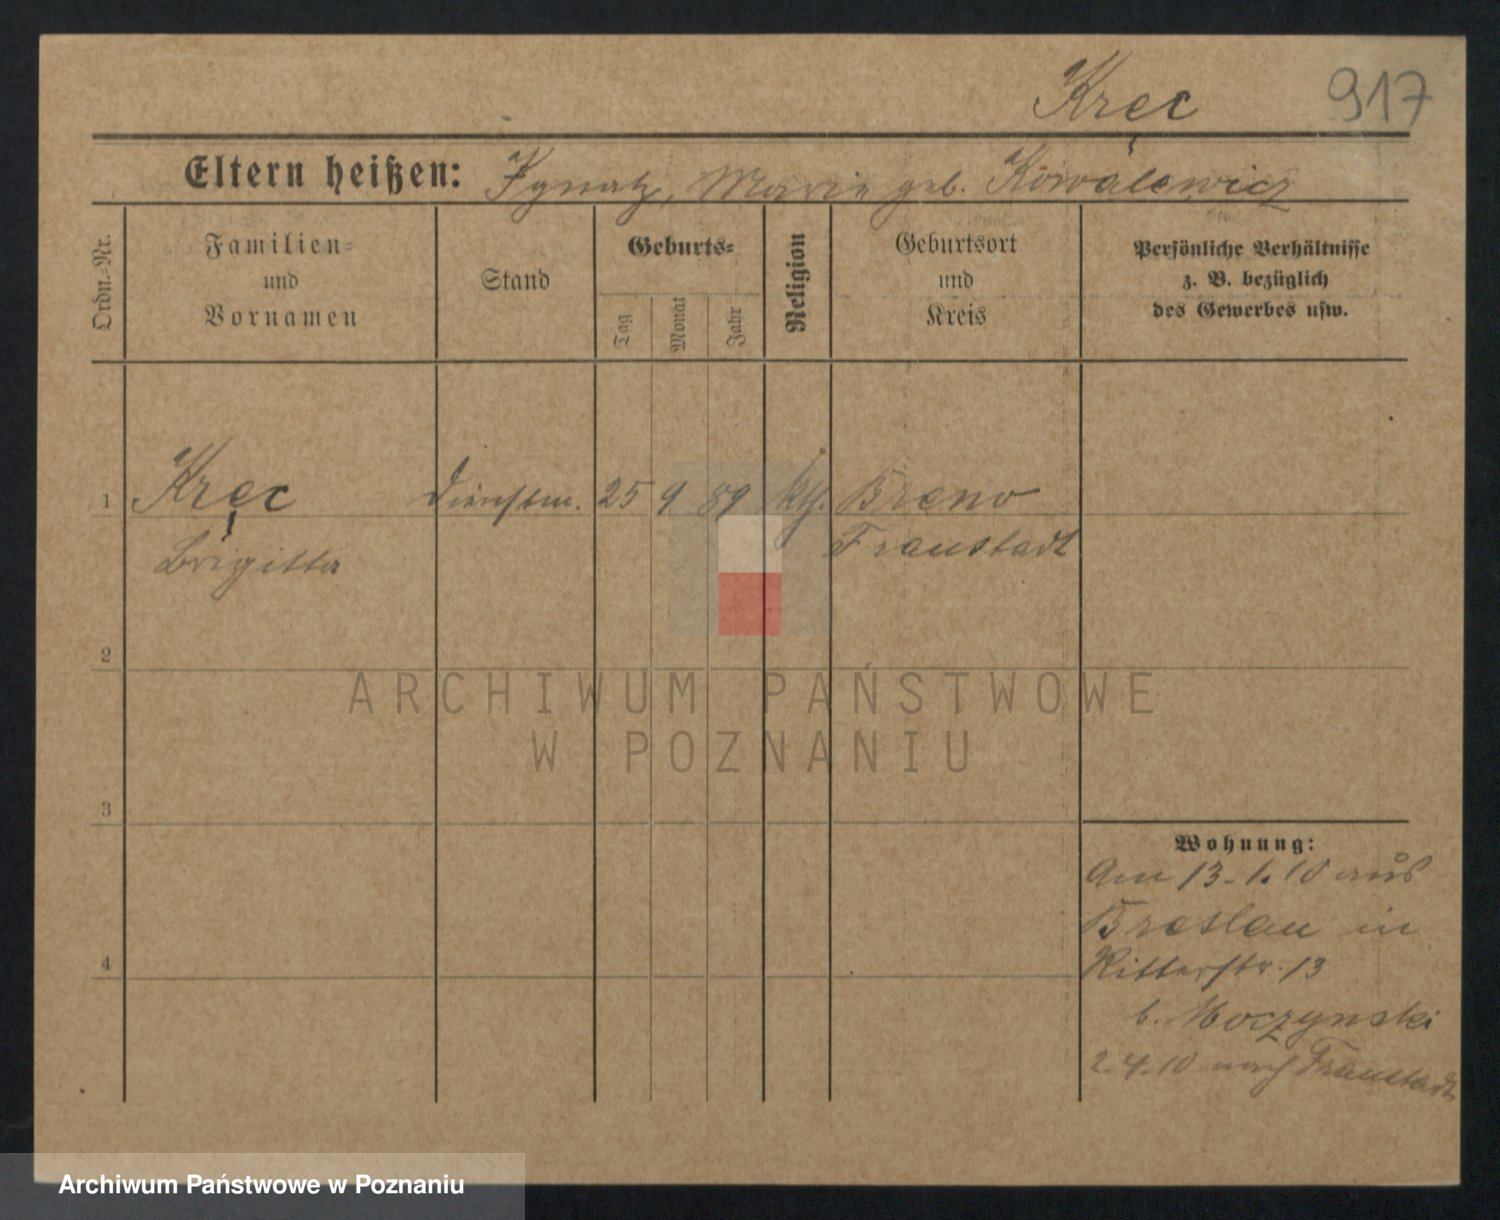 Kręc 917
Eltern heißen: Ignatz, Marie geb. Kowalewicz
Ordn.-Nr.
Familien-
und
Vornamen
Stand
Geburts-
Tag
Monat
Jahr
Religion
Geburtsort
und
Kreis
Persönliche Verhältnisse
z. B. bezüglich
des Gewerbes usw.
1 Kręc Dienstm. 25 9 89 kth. Breno
Brigitta Fraustadt
2
ARCHIWUM PAŃSTWOWE
W POZNANIU
3
Wohnung:
Am 13.1.10 aus
Breslau in
4 Ritterstr. 13
b. Moczynski
2.4.10 nach Fraustadt
Archiwum Państwowe w Poznaniu